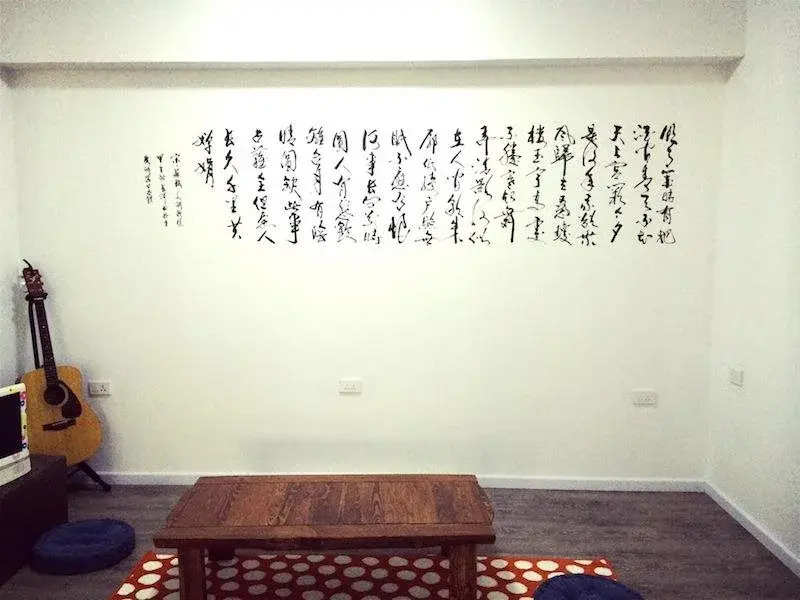 明月幾時有把
酒問青天不知
天上宮闕今夕
是何年我欲乘
風歸去又恐瓊
樓玉宇高處
不勝寒起舞
弄清影何似
在人間轉朱
閣低綺戶照無
眠不應有恨
何事長向別時
圓人有悲歡
離合月有陰
晴圓缺此事
古難全但願人
長久千里共
嬋娟
宋蘇軾水調歌頭